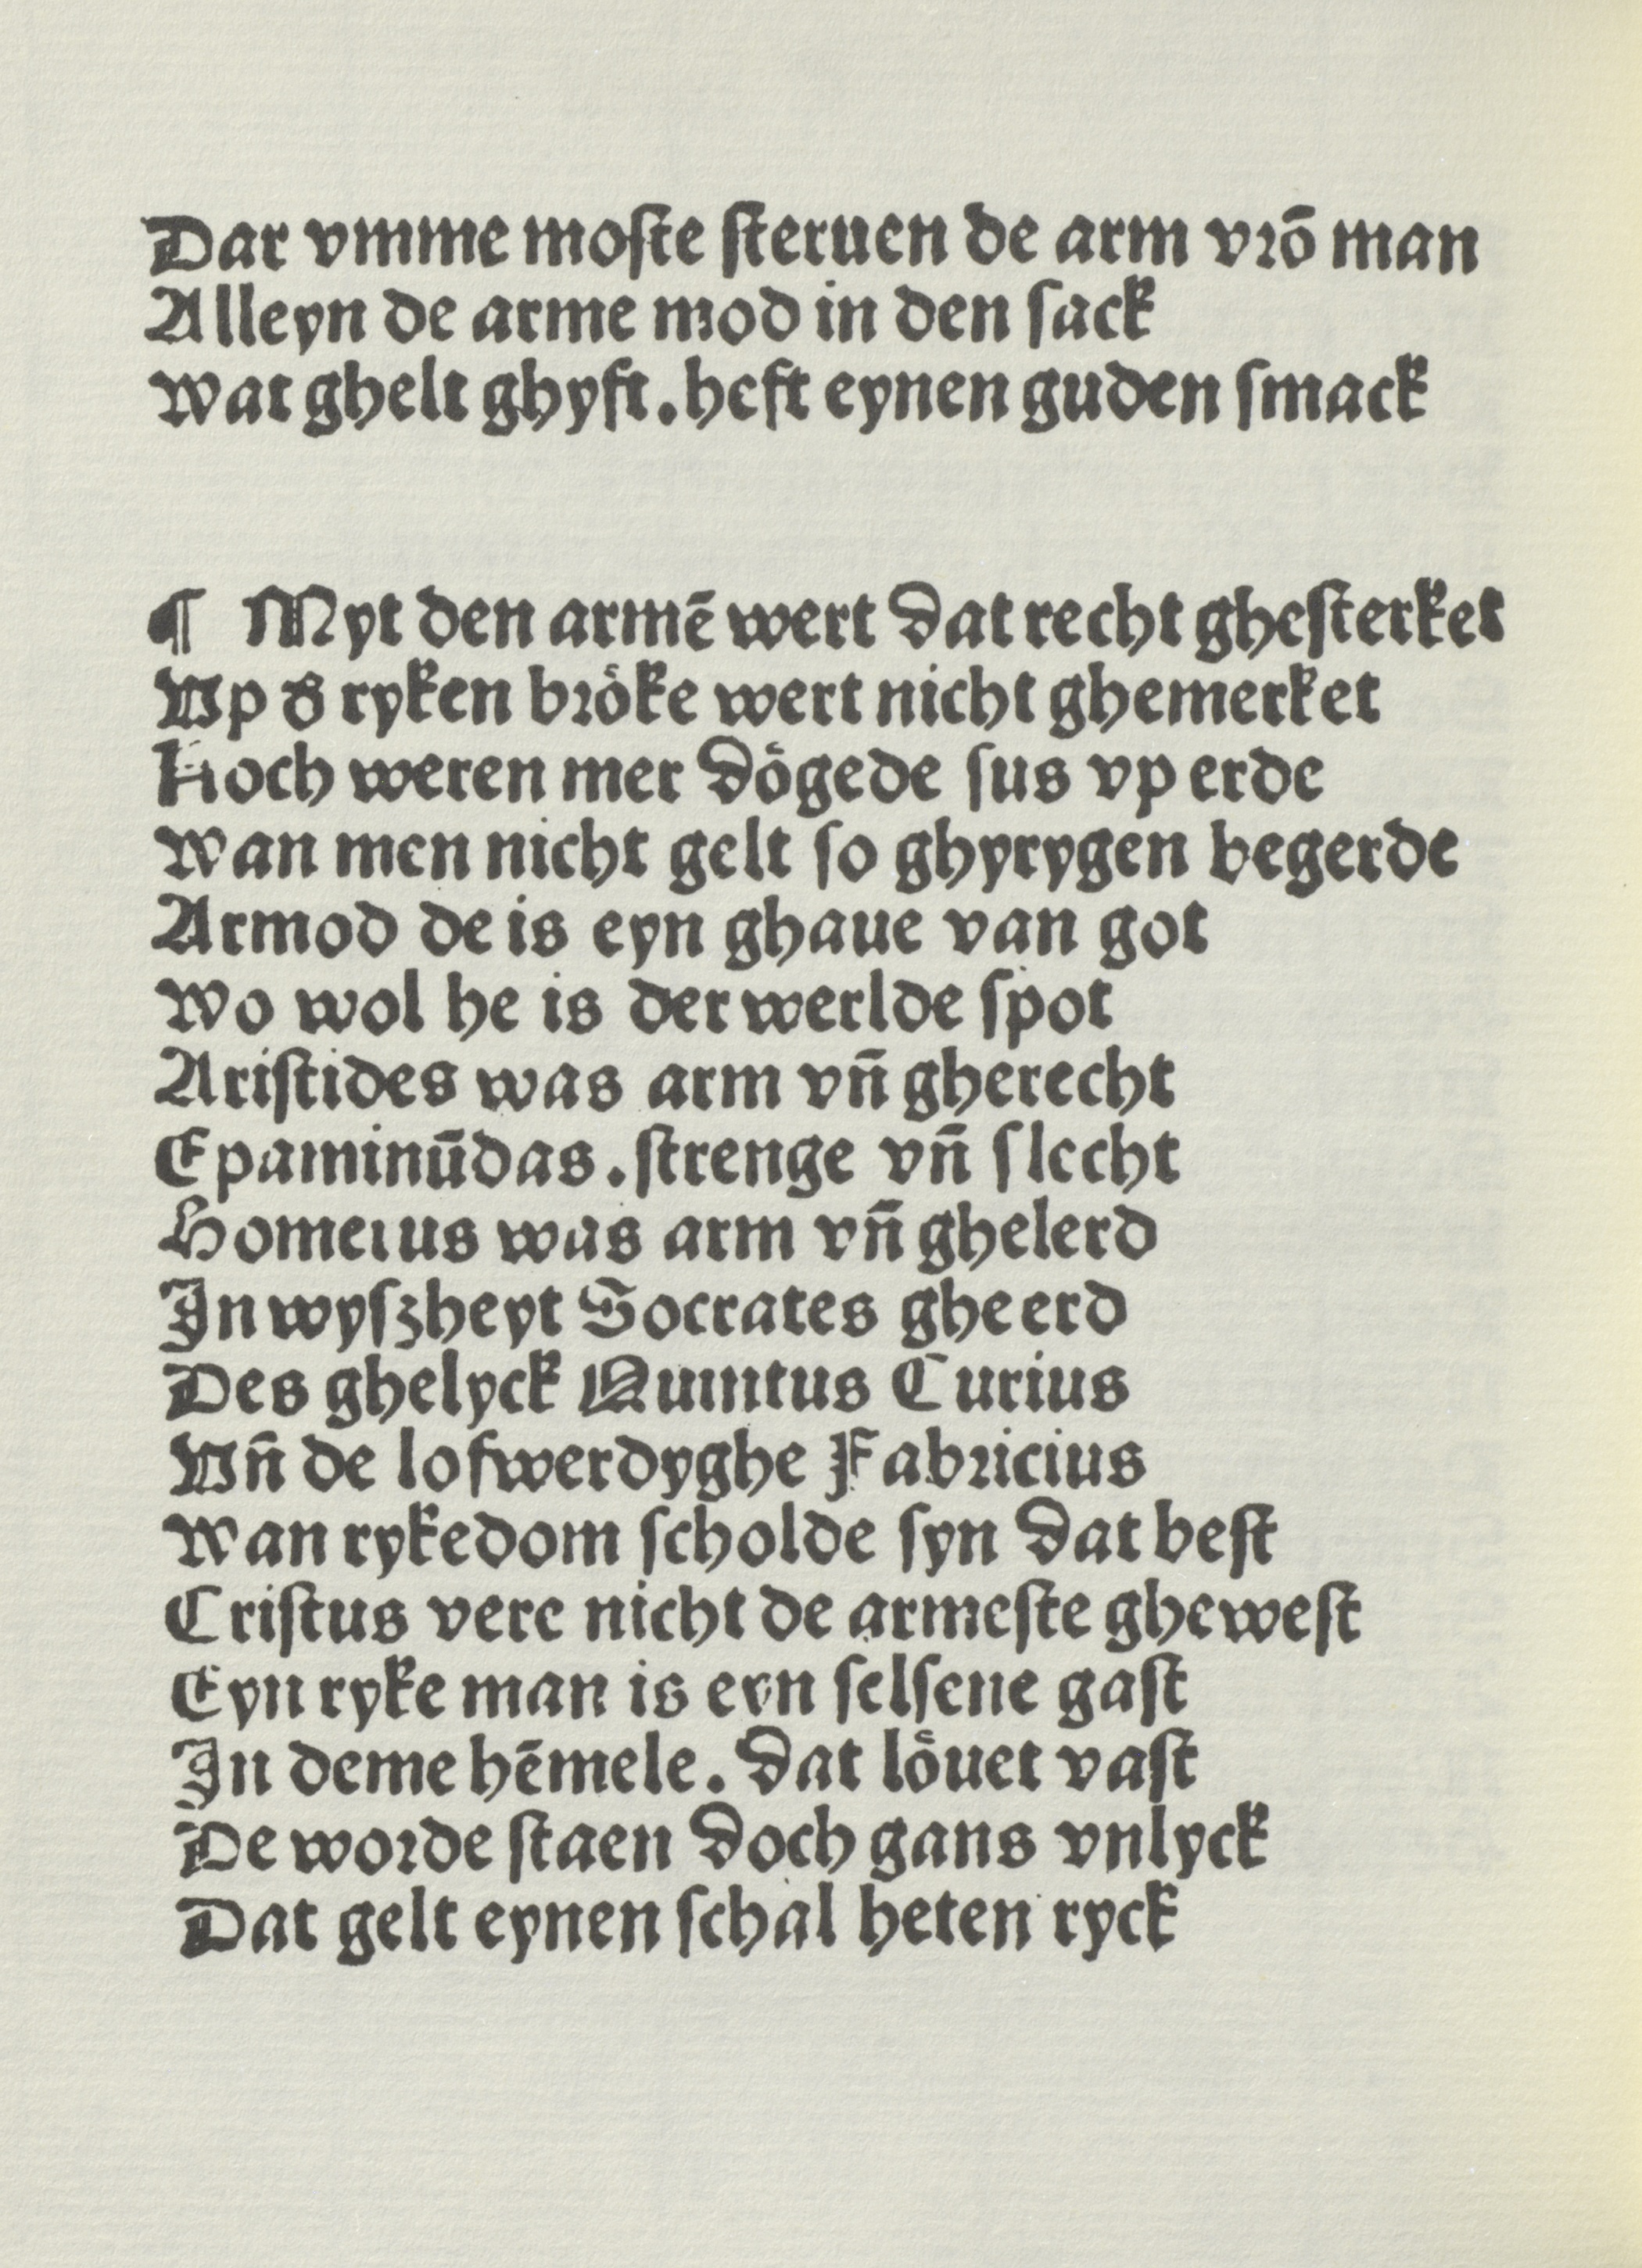 Dar vmme moſte ſteruen de arm vꝛō man
Alleyn de arme mod in den ſack
wat ghelt ghyft. heft eynen guden ſmack
¶ Myt den armē wert dat recht gheſterket
Vp ꝺ̉ ryken bꝛöke wert nicht ghemerket
Noch weren mer dögede ſus vp erde
wan men nicht gelt ſo ghyrygen begerde
Armod de is eyn ghaue van got
wo wol he is der werlde ſpot
Ariſtides was arm vn̄ gherecht
Epaminūdas. ſtrenge vn̄ ſlecht
Homerus was arm vn̄ ghelerd
In wyſzheyt Socrates gheerd
Des ghelyck Quintus Curius
Vn̄ de lofwerdyghe Fabꝛicius
wan rykedom ſcholde ſyn dat beſt
Criſtus vere nicht de armeſte gheweſt
Eyn ryke man is eyn ſelſene gaſt
In deme hēmele. dat löuet vaſt
De woꝛde ſtaen doch gans vnlyck
Dat gelt eynen ſchal heten ryck